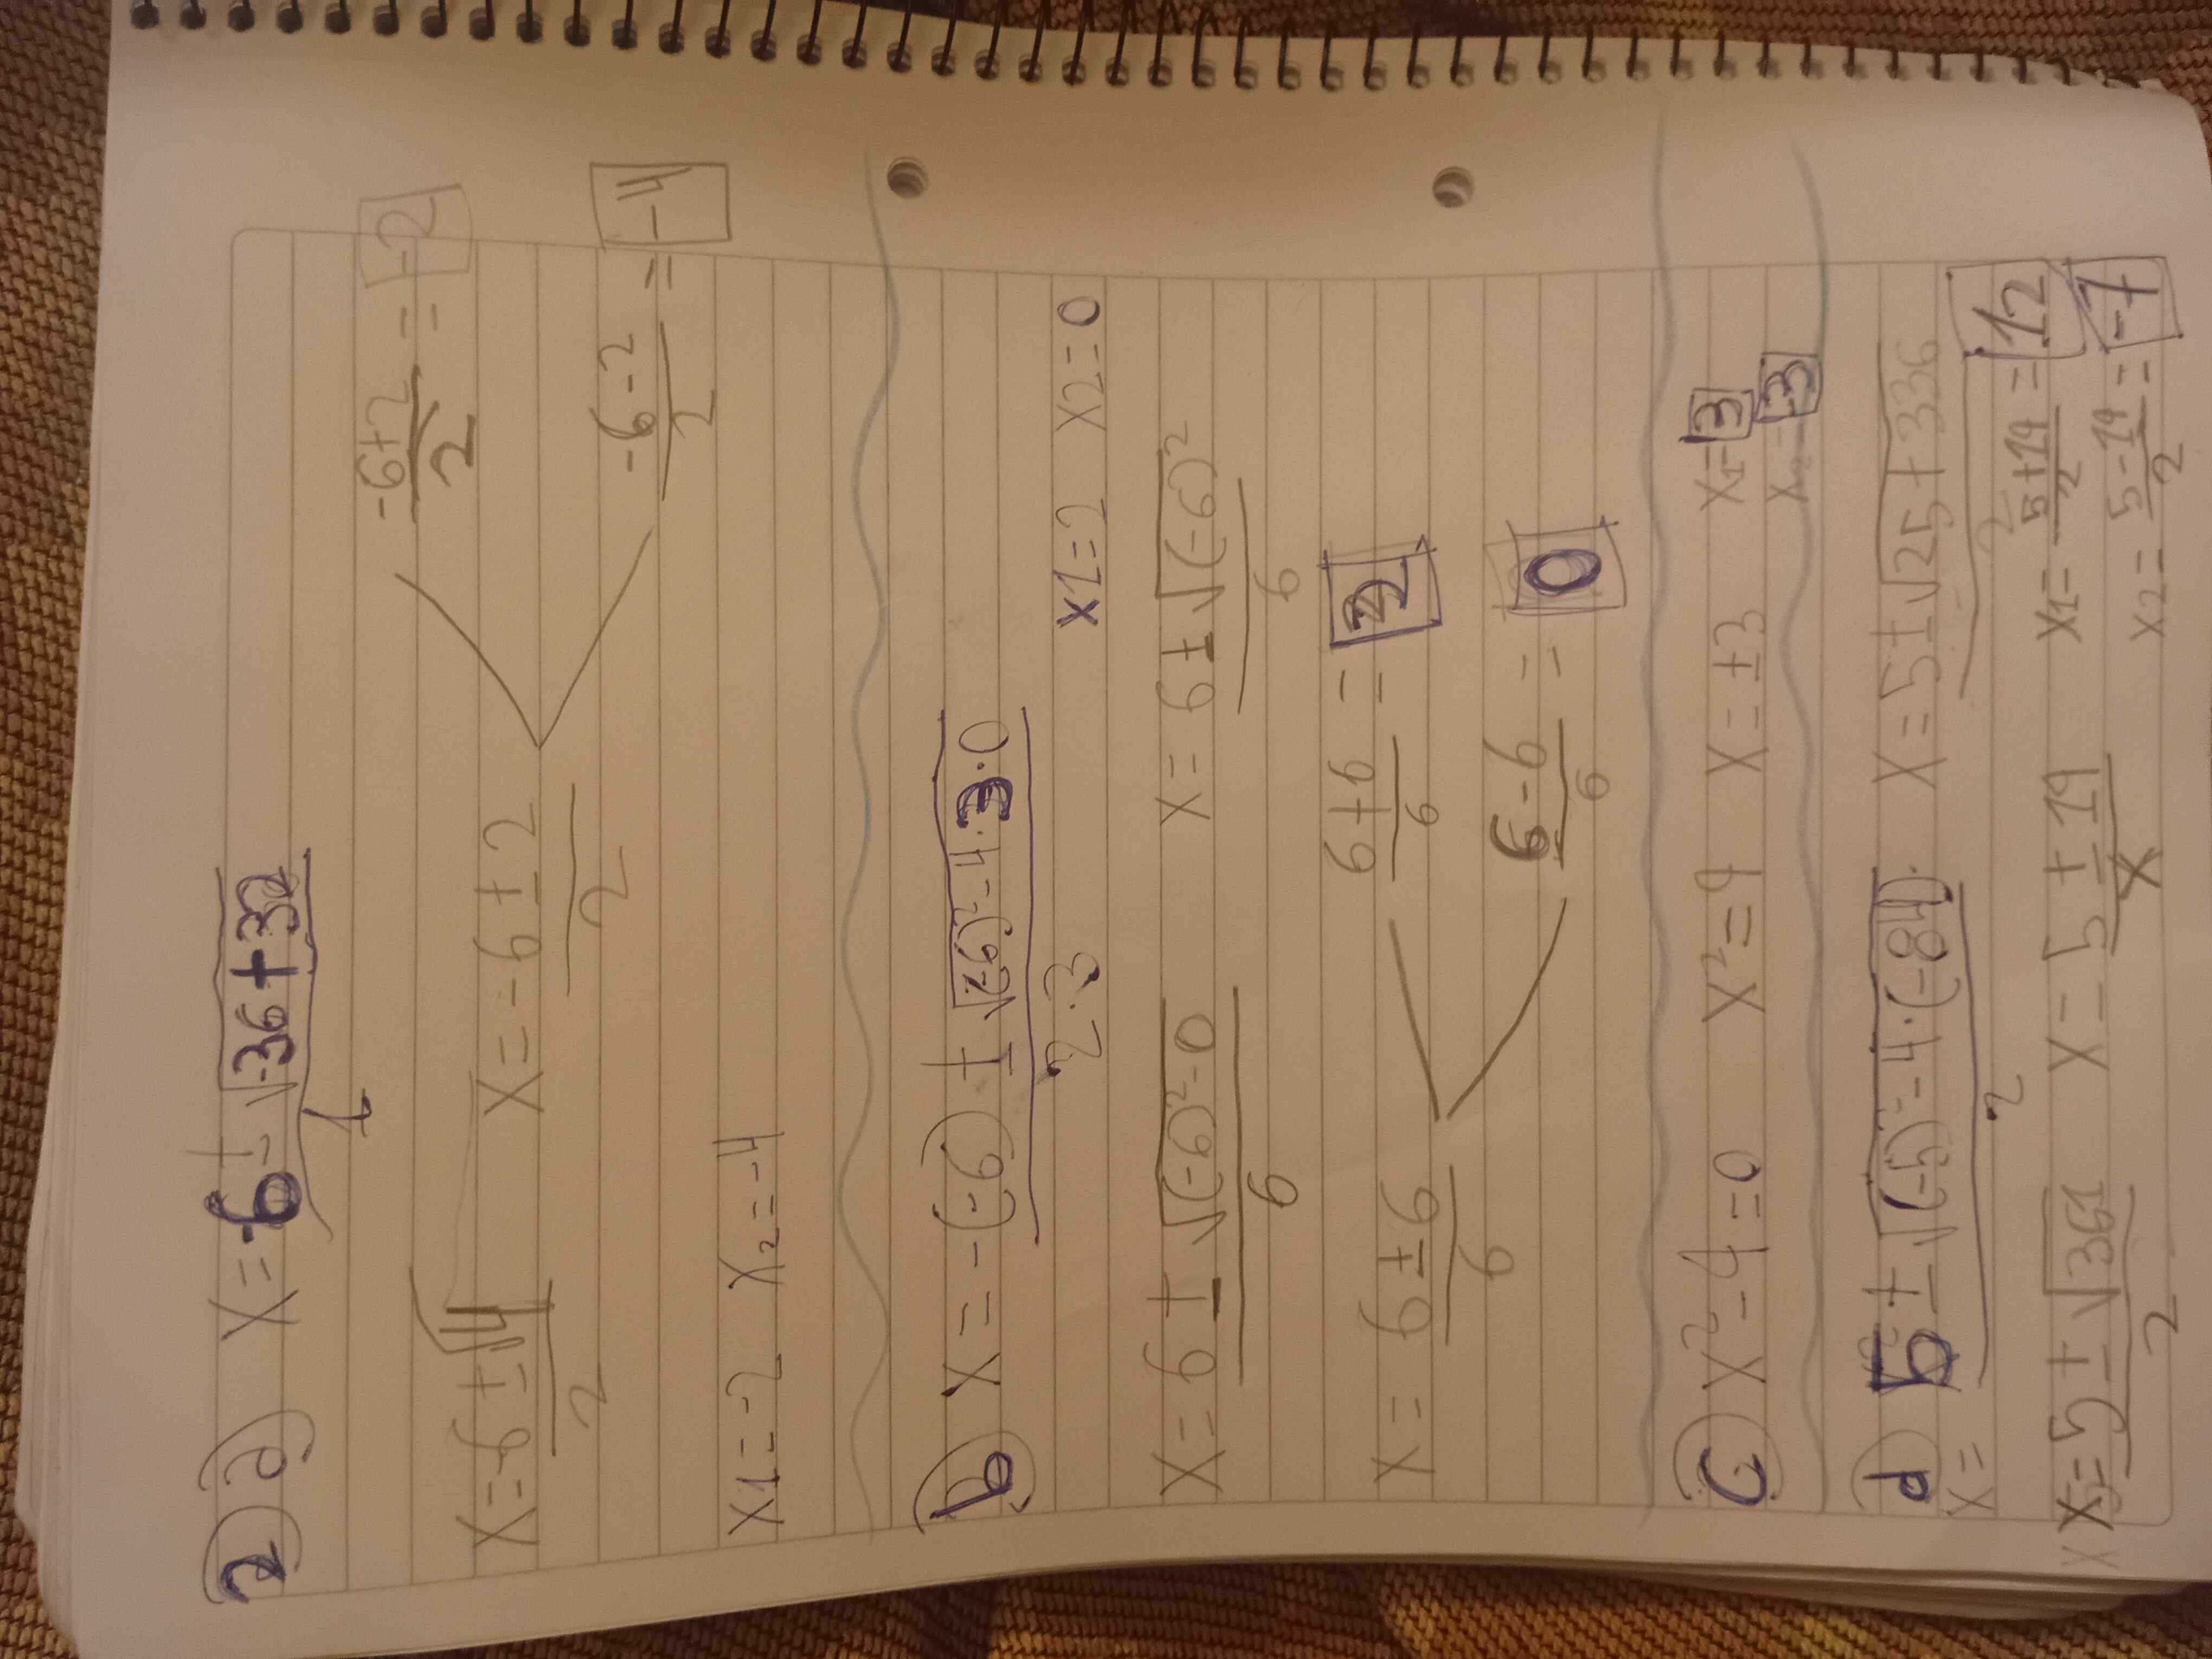 2) a) X = -6 ± √-36+32
X = -6 ± √4 / 2 X = -6 ± 2 / 2 -6+2 / 2 = -2
-6-2 / 2 = -4
X1 = -2 X₂ = -4
b) X = -(-6) ± √(-6)²-4·3·0 / 2·3
X1=2 X2=0
X = 6 ± √(-6)²-0 / 6 X = 6 ± √(-6)² / 6
X = 6 ± 6 / 6 6+6 / 6 = 2
6-6 / 6 = 0
c) X²-9=0 X²=9 X=±3 X₁=3
X₂=-3
d) X = 5 ± √(-5)²-4·(-84) / 2 X = 5±√25+336 / 2
X = 5 ± √361 / 2 X = 5 ± 19 / X X1 = 5+19 / 2 = 12
X2 = 5-19 / 2 = -7